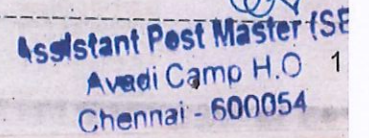 Assistant Post Master (SE
Avadi Camp H.O 1
Chennai - 600054